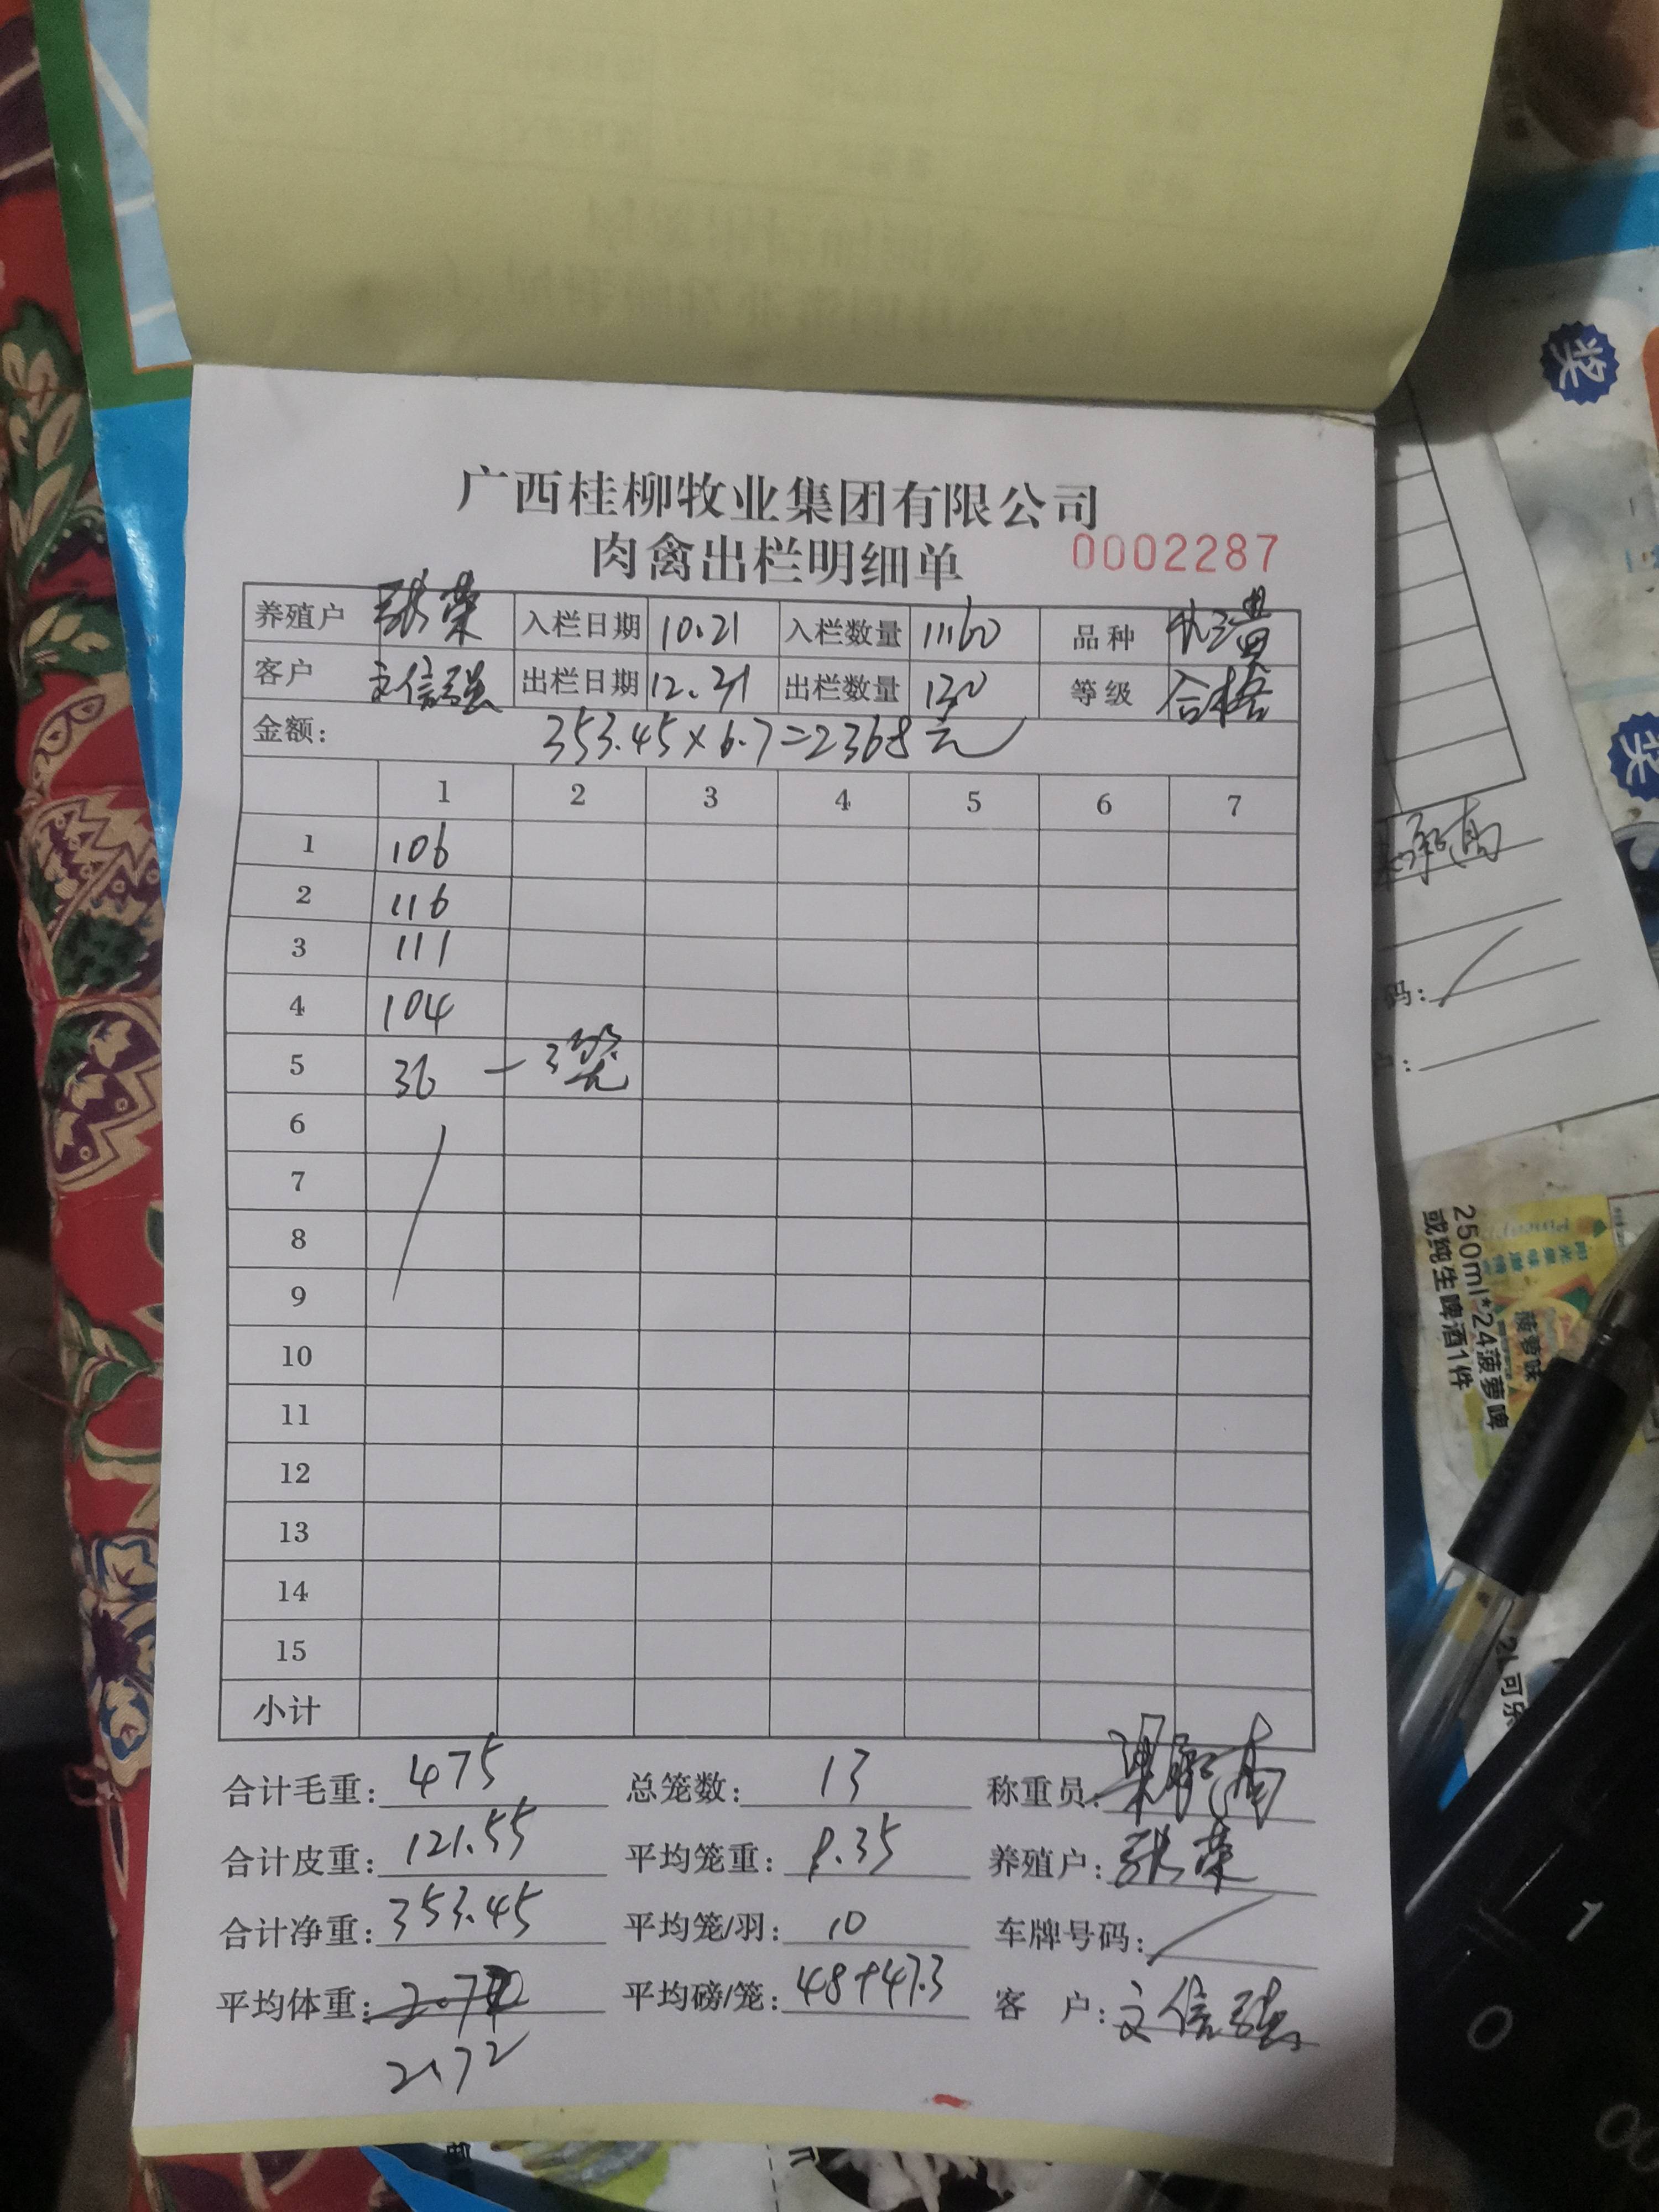 广西桂柳牧业集团有限公司
肉禽出栏明细单 0002287
养殖户 张荣 入栏日期 10.21 入栏数量 11160 品种
客户 文信强 出栏日期 12.31 出栏数量 130 等级 合格
金额: 353.45×6.7=2368元
1 2 3 4 5 6 7
1 106
2 116
3 111
4 104
5 36 — 3笼
6
7
8
9
10
11
12
13
14
15
小计
合计毛重: 475 总笼数: 13 称重员:
合计皮重: 121.55 平均笼重: 9.35 养殖户: 张荣
合计净重: 353.45 平均笼/羽: 10 车牌号码:
平均体重: 平均磅/笼: 48+47.3 客 户: 文信强
2.72
奖
奖
码:
户:
250ml*24菠萝啤
或纯生啤酒1件
菠萝味
2L可乐
1
0
00